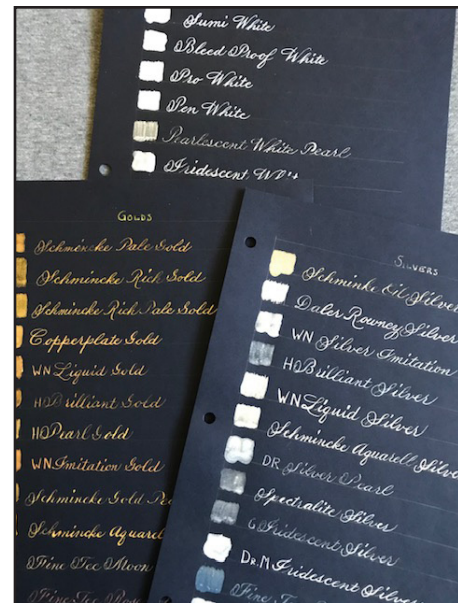 Sumi White
Bleed Proof White
Pro White
Pen White
Pearlescent White Pearl
Iridescent
GOLDS
Schmincke Pale Gold
Schmincke Rich Gold
Schmincke Rich Pale Gold
Copperplate Gold
WN Liquid Gold
HO Brilliant Gold
HO Pearl Gold
WN Imitation Gold
Schmincke Gold
Schmincke Aquarel
Fine Tec Moon
Fine Tec Rose
SILVERS
Schminke Oil Silver
Daler Rowney Silver
WN Silver Imitation
HO Brilliant Silver
WN Liquid Silver
Schmincke Aquarell Silve
DR Silver Pearl
Spectralite Silver
G Iridescent Silver
Dr. M Iridescent Silver
Fine